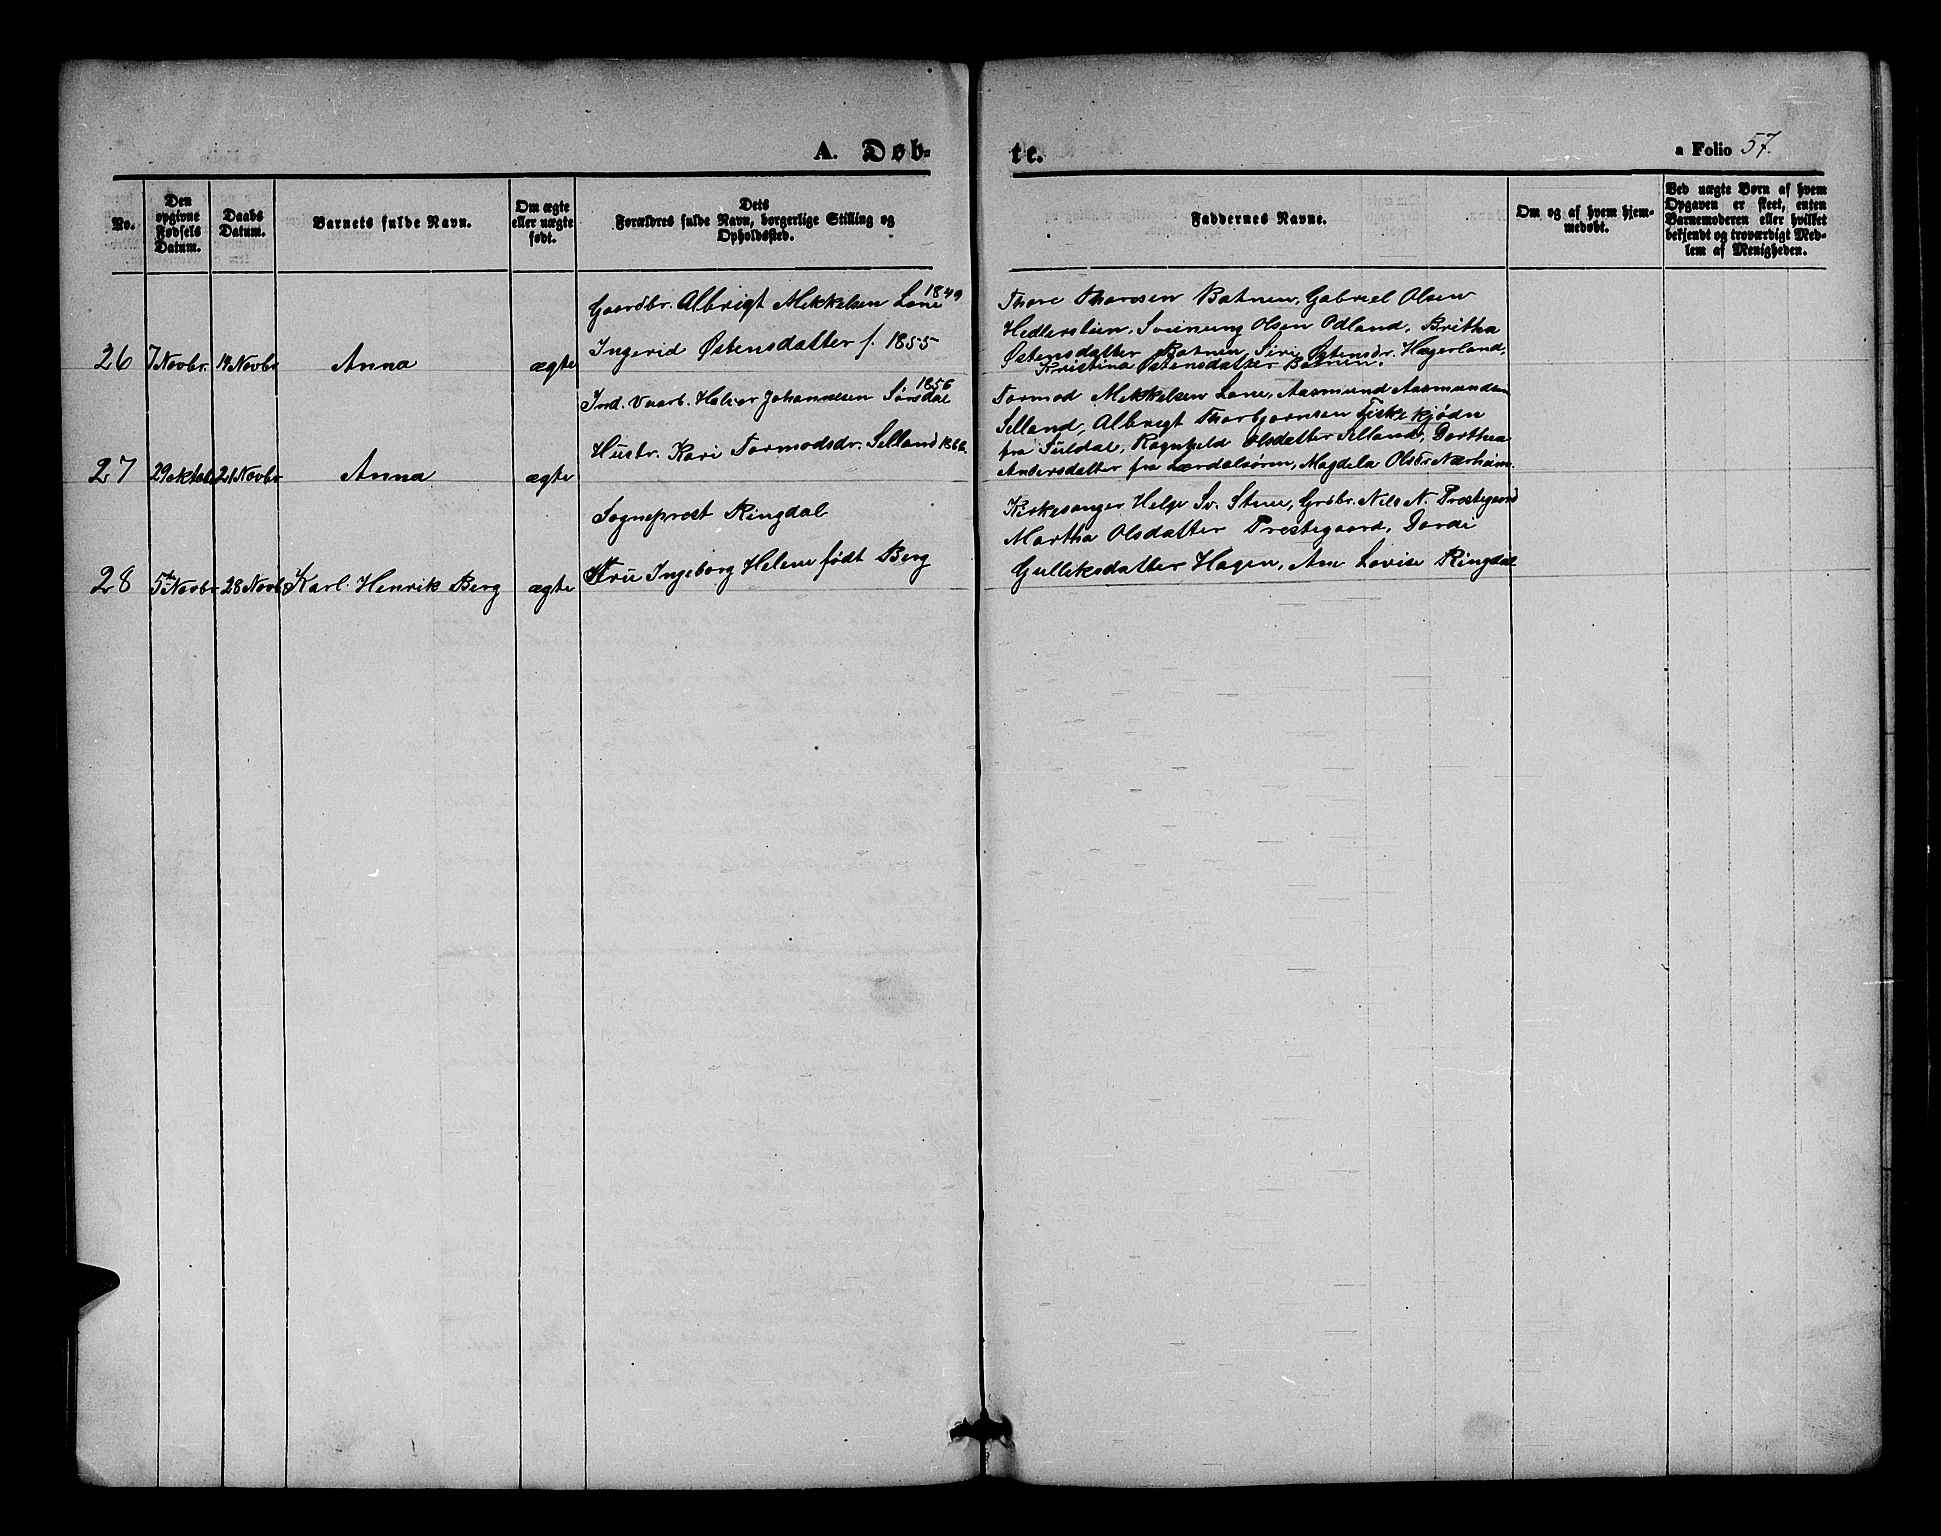 A. Døb-
te.
a Folio 57.
No.
Den opgivne Fødsels Datum.
Daabs Datum.
Barnets fulde Navn.
Om ægte eller uægte født.
Dets Forældres fulde Navn, borgerlige Stilling og Opholdssted.
Faddernes Navne.
Om og af hvem hjemmedøbt.
Ved uægte Børn af hvem Opgaven er skeet, enten Barnemoderen eller hvilket bekjendt og troværdigt Medlem af Menigheden.
26 7 Novbr. 14 Novbr Anna ægte
Gaardbr. Albrigt Mekkelsen Lone 1849
Ingerid Østensdatter f. 1855
Thore Thoresen Batnen, Gabriel Olsen
Hedlerstein, Sveinung Olsen Odland, Britha
Østensdatter Batnen, Siri Østensdr. Hægerland,
Kristina Østensdatter Batnen.
27 29 oktobr 21 Novbr Anna ægte
Ind. Vaarb. Halvor Johannesen Sørsdal 1856
Hustr. Kari Tormodsdr. Selland 1860.
Tormod Mekkelsen Lone, Aasmund Aasmundsen
Selland, Albrigt Thorbjørnsen Fiskekjødn
fra Suldal, Ragnhild Olsdatter Selland, Dorthea
Andersdatter fra Lærdalsøren, Magdela Olsdr Nærheim.
28 5te Novbr 28 Novbr Karl Henrik Berg ægte
Sogneprest Ringdal
Fru Ingeborg Helene født Berg
Kirkesanger Helge Sv. Stene, Grdbr. Nils N. Prestegaard
Martha Olsdatter Prestegaard, Dordi
Gulleksdatter Hagen, Ane Lovise Ringdal